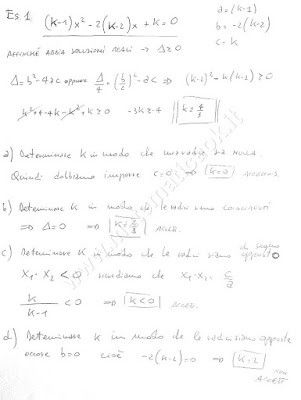 Es.1 (k-1)x²-2(k-2)x+k=0
a=(k-1)
b=-2(k-2)
c=k
AFFINCHÉ ABBIA SOLUZIONI REALI → Δ≥0
Δ=b²-4ac oppure Δ/4=(b/2)²-ac ⇒ (k-2)²-k(k-1)≥0
k²+4-4k-k²+k≥0 -3k≥-4
a) Determinare k in modo che una radice sia NULLA.
Quindi dobbiamo imporre c=0 ⇒ k=0
b) Determinare k in modo che le radici siano coincidenti
⇒ Δ=0 ⇒ ACCETT.
c) Determinare k in modo che le radici siano di segno opposto
x₁·x₂<0 ricordiamo che x₁·x₂=c/a
k/(k-1)<0 ⇒ k<0 ACCETT.
d) Determinare k in modo che le radici siano opposte
occorre b=0 cioè -2(k-2)=0 ⇒ k=2 NON ACCETT